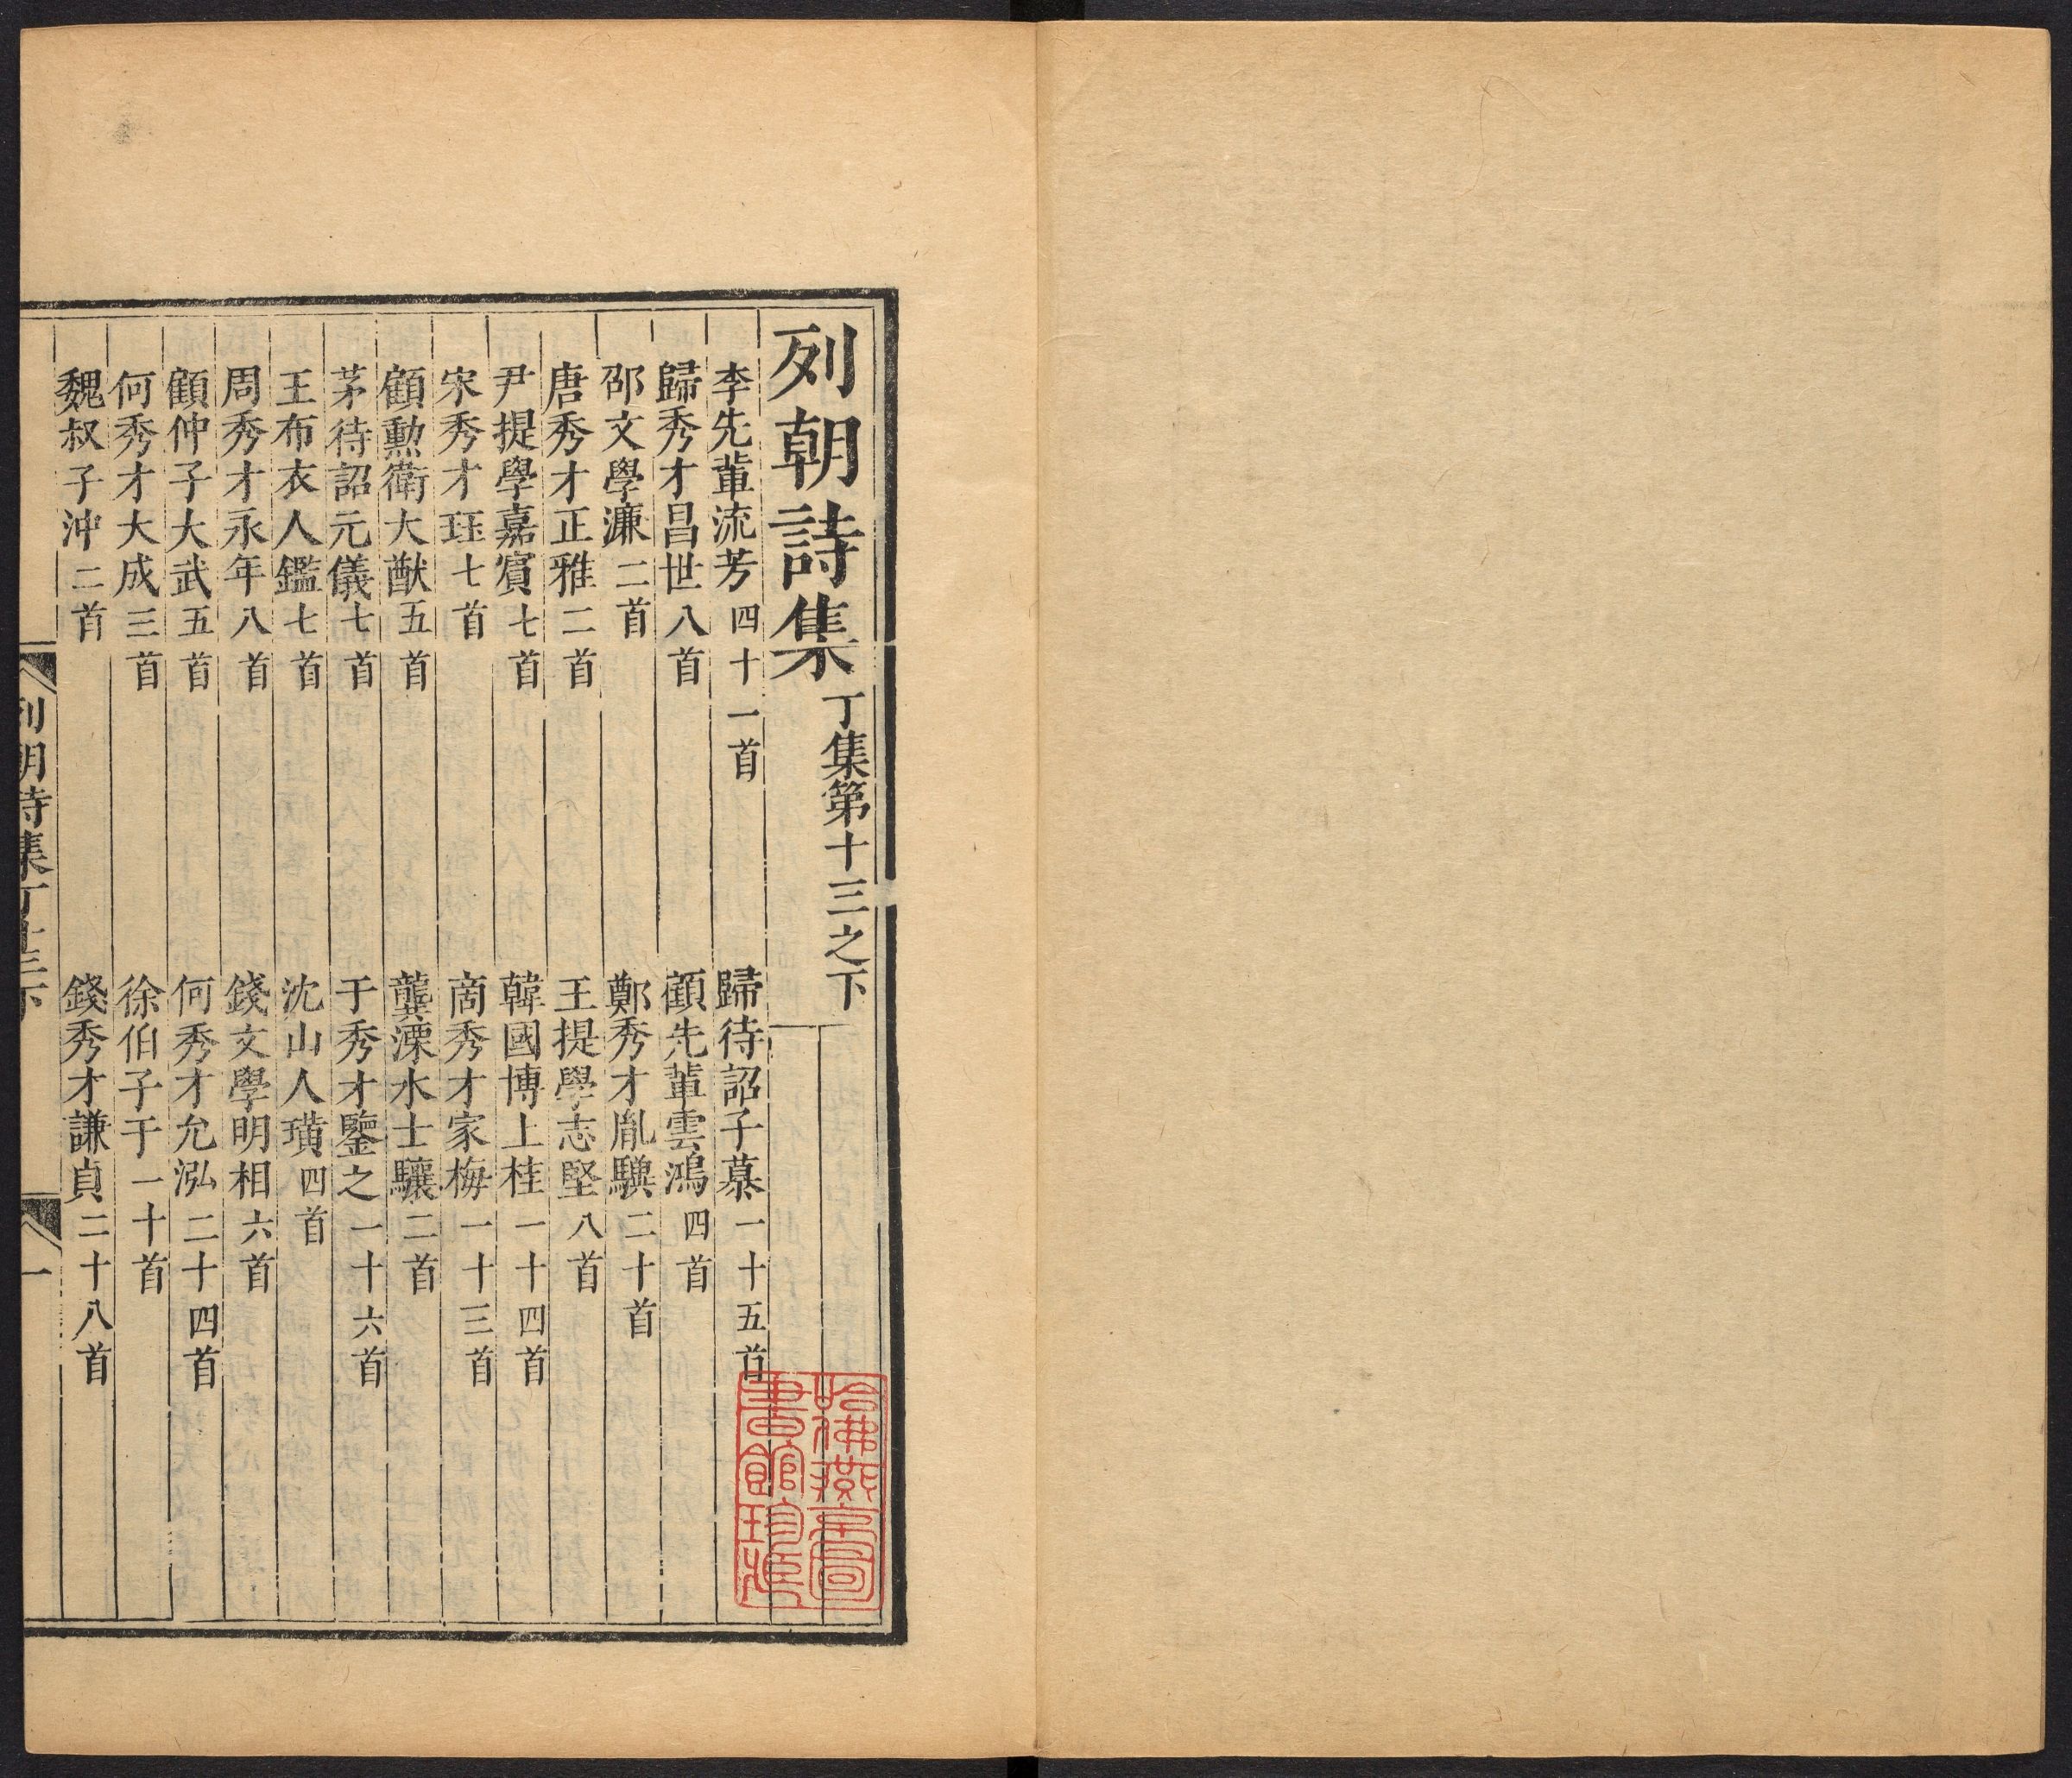 列朝詩集 丁集第十三之下
李先輩流芳 四十一首 歸待詔子慕 一十五首
歸秀才昌世 八首 顧先輩雲鴻 四首
邵文學濂 二首 鄭秀才胤驥 二十首
唐秀才正雅 二首 王提學志堅 八首
尹提學嘉賓 七首 韓國博上桂 一十四首
宋秀才珏 七首 商秀才家梅 一十三首
顧勲衛大猷 五首 龔溧水士驤 二首
茅待詔元儀 七首 于秀才鑒之 一十六首
王布衣人鑑 七首 沈山人璜 四首
周秀才永年 八首 錢文學明相 六首
顧仲子大武 五首 何秀才允泓 二十四首
何秀才大成 三首 徐伯子于 一十首
魏叔子沖 二首 錢秀才謙貞 二十八首
列朝詩集丁十三下 一
哈佛燕京圖
書館珍藏